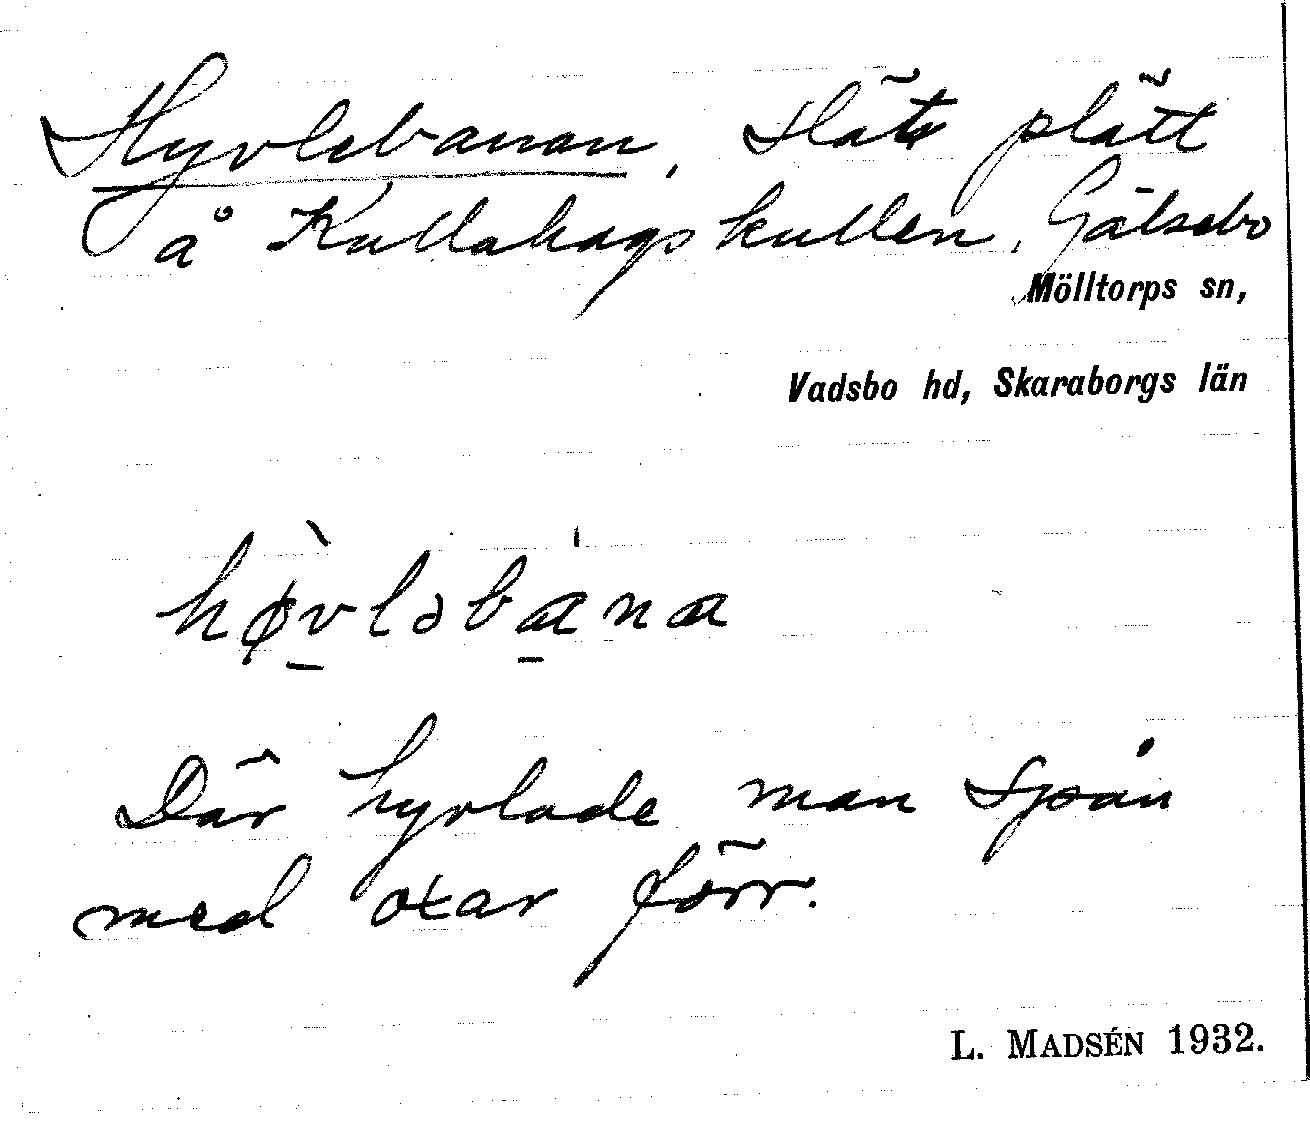 Hyvlebanan, slät plätt
å Kullahagskullen, Gälsebo
Mölltorps sn,
Vadsbo hd, Skaraborgs län
hø̀vləbana
Där hyvlade man spån
med oxar förr.
L. MADSÉN 1932.